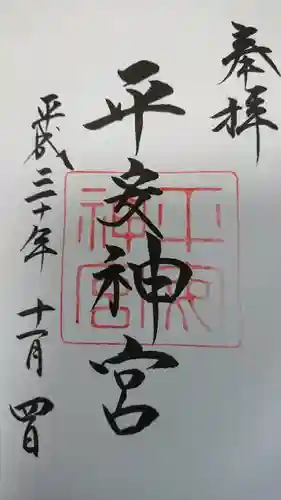 奉拝
平安神宮
平安神宮
平成三十年十一月四日